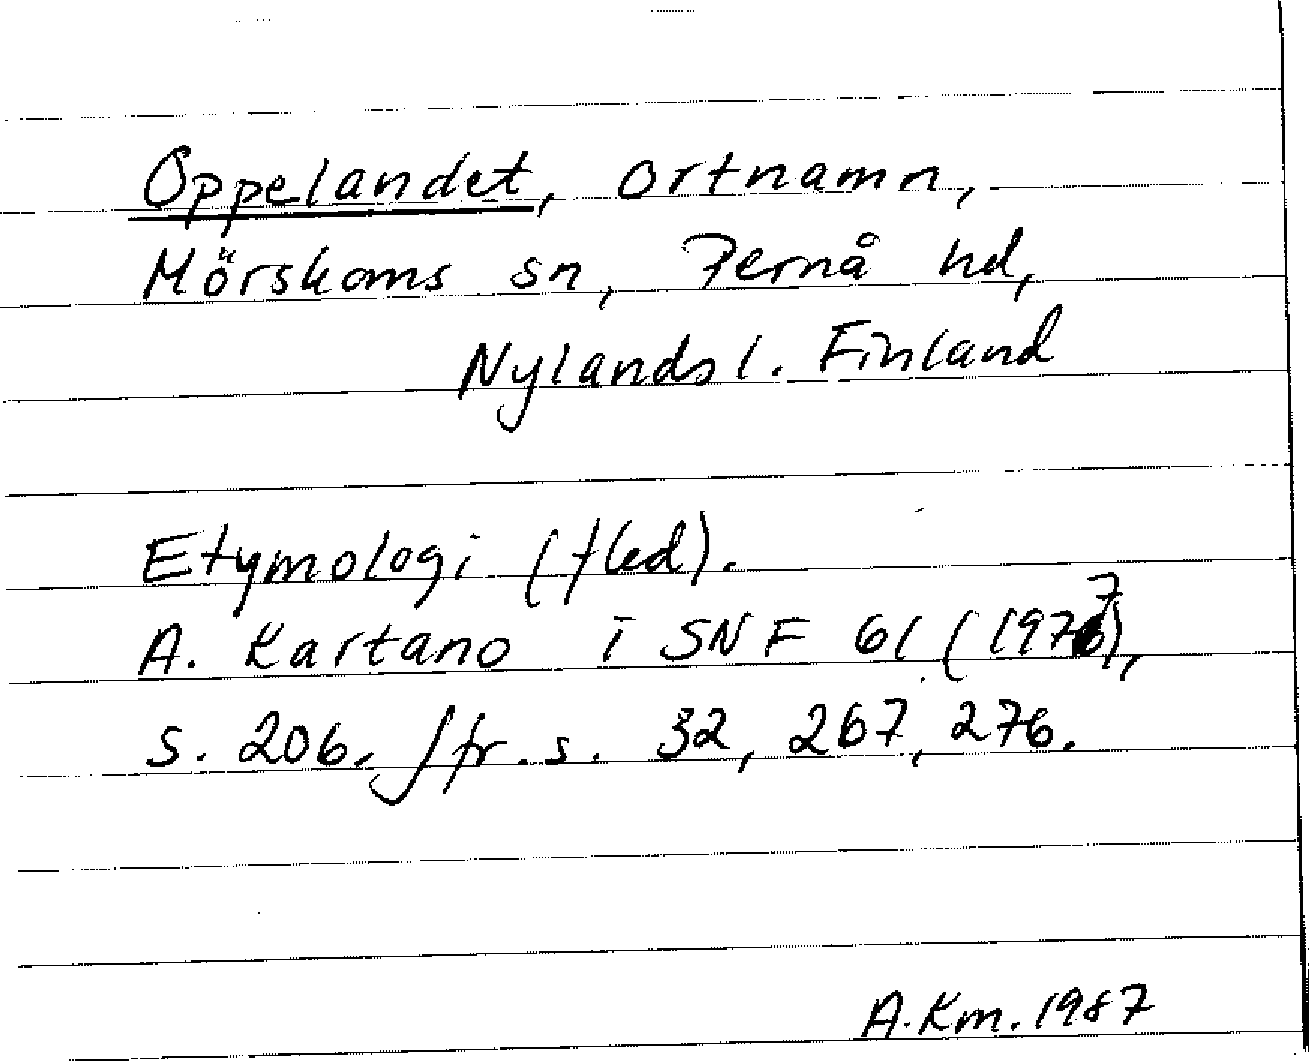 Oppelandet, ortnamn,
Mörskoms sn, Pernå hd,
Nylands l. Finland
Etymologi (fled).
A. Kartano i SNF 61 (1977),
s. 206. Jfr. s. 32, 267, 276.
A.Km. 1987